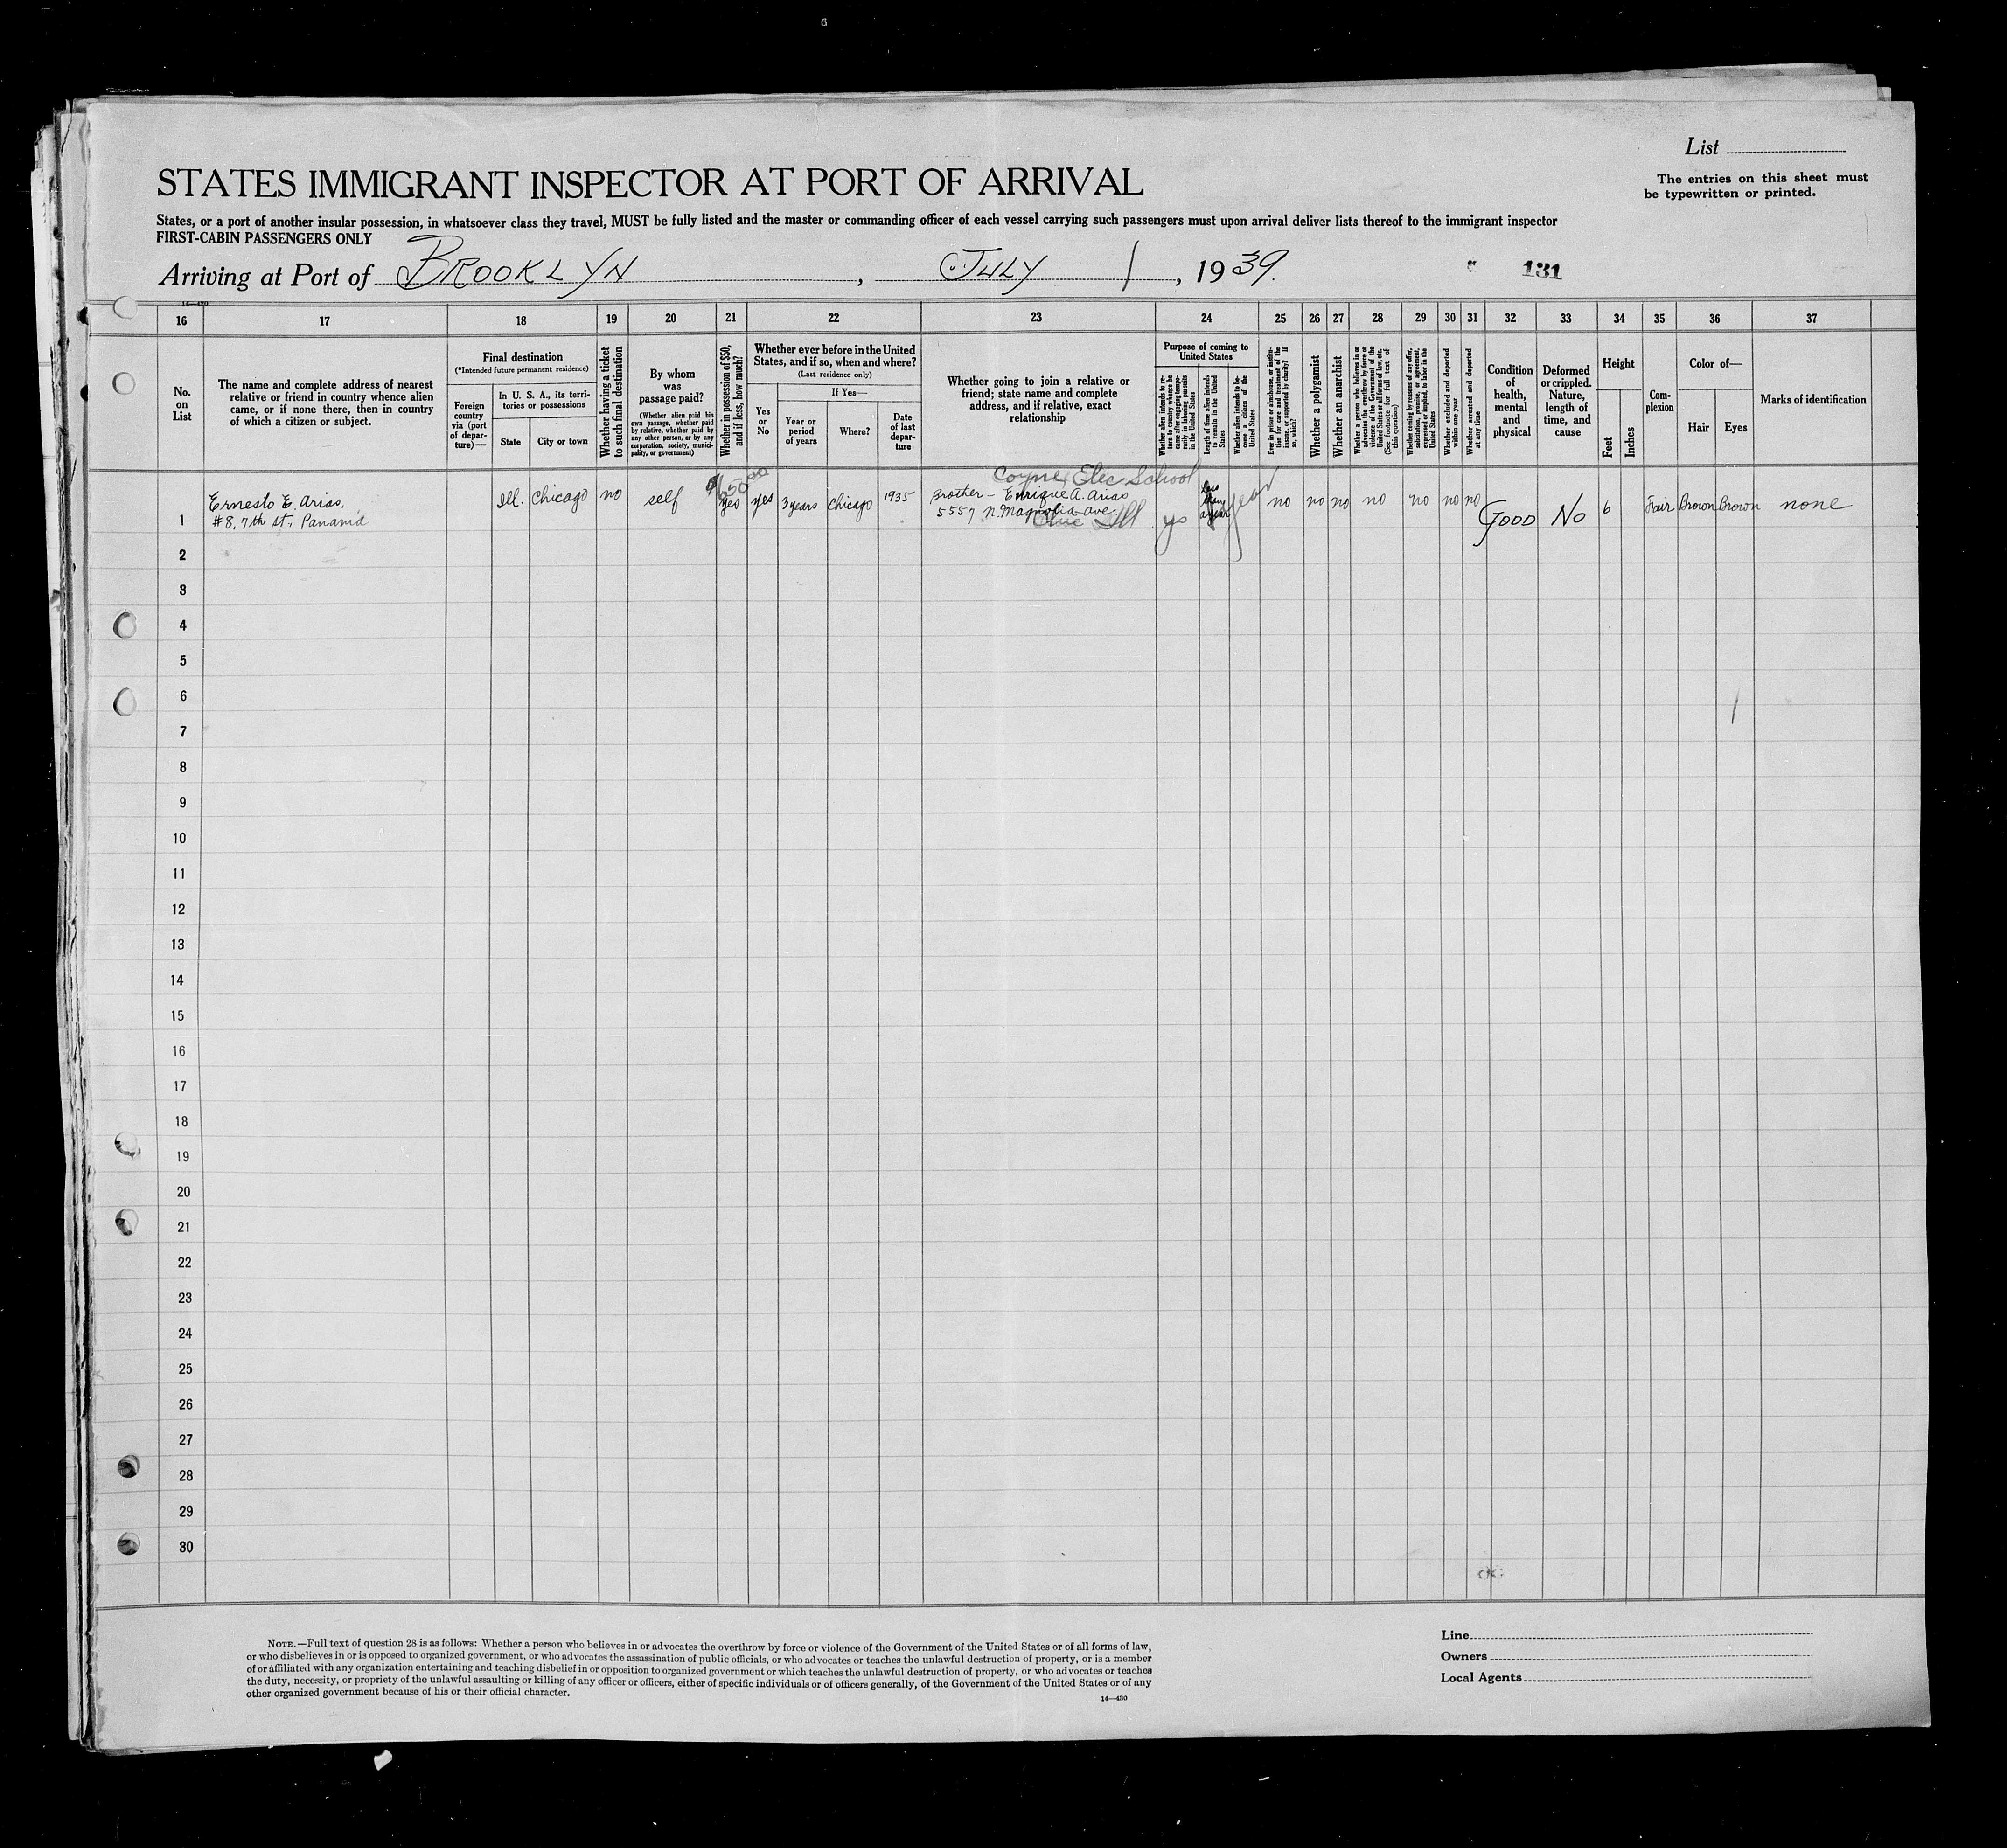 List
STATES IMMIGRANT INSPECTOR AT PORT OF ARRIVAL
The entries on this sheet must
be typewritten or printed.
States, or a port of another insular possession, in whatsoever class they travel, MUST be fully listed and the master or commanding officer of each vessel carrying such passengers must upon arrival deliver lists thereof to the immigrant inspector
FIRST-CABIN PASSENGERS ONLY
Arriving at Port of BROOKLYN, JULY 1, 1939.
131
14—430
16 17 18 19 20 21 22 23 24 25 26 27 28 29 30 31 32 33 34 35 36 37
No.
on
List
The name and complete address of nearest
relative or friend in country whence alien
came, or if none there, then in country
of which a citizen or subject.
Final destination
(*Intended future permanent residence)
Foreign
country
via (port
of depar-
ture)—
In U. S. A., its terri-
tories or possessions
State
City or town
Whether having a ticket
to such final destination
By whom
was
passage paid?
(Whether alien paid his
own passage, whether paid
by relative, whether paid by
any other person, or by any
corporation, society, munici-
pality, or government)
Whether in possession of $50,
and if less, how much?
Whether ever before in the United
States, and if so, when and where?
(Last residence only)
Yes
or
No
If Yes—
Year or
period
of years
Where?
Date
of last
depar-
ture
Whether going to join a relative or
friend; state name and complete
address, and if relative, exact
relationship
Purpose of coming to
United States
Whether alien intends to re-
turn to country whence he
came after engaging tempo-
rarily in laboring pursuits
in the United States
Length of time alien intends
to remain in the United
States
Whether alien intends to be-
come a citizen of the
United States
Ever in prison or almshouse, or institu-
tion for care and treatment of the
insane, or supported by charity? If
so, which?
Whether a polygamist
Whether an anarchist
Whether a person who believes in or
advocates the overthrow by force or
violence of the Government of the
United States or all forms of law, etc.
(See footnote for full text of
this question)
Whether coming by reasons of any offer,
solicitation, promise, or agreement,
expressed or implied, to labor in the
United States
Whether excluded and deported
within one year
Whether arrested and deported
at any time
Condition
of
health,
mental
and
physical
Deformed
or crippled.
Nature,
length of
time, and
cause
Height
Feet
Inches
Com-
plexion
Color of—
Hair
Eyes
Marks of identification
Coyne Elec School
1 Ernesto E. Arias, Ill. Chicago no self yes yes 3 years Chicago 1935 Brother - Enrique A. Arias
#8, 7th st, Panamá 5557 N. Magnolia ave.
Ill yes less than a year year no no no no no no no GOOD No 6 Fair Brown Brown none
2
3
4
5
6
7
8
9
10
11
12
13
14
15
16
17
18
19
20
21
22
23
24
25
26
27
28
29
30
NOTE.—Full text of question 28 is as follows: Whether a person who believes in or advocates the overthrow by force or violence of the Government of the United States or of all forms of law,
or who disbelieves in or is opposed to organized government, or who advocates the assassination of public officials, or who advocates or teaches the unlawful destruction of property, or is a member
of or affiliated with any organization entertaining and teaching disbelief in or opposition to organized government or which teaches the unlawful destruction of property, or who advocates or teaches
the duty, necessity, or propriety of the unlawful assaulting or killing of any officer or officers, either of specific individuals or of officers generally, of the Government of the United States or of any
other organized government because of his or their official character.
14—430
Line
Owners
Local Agents